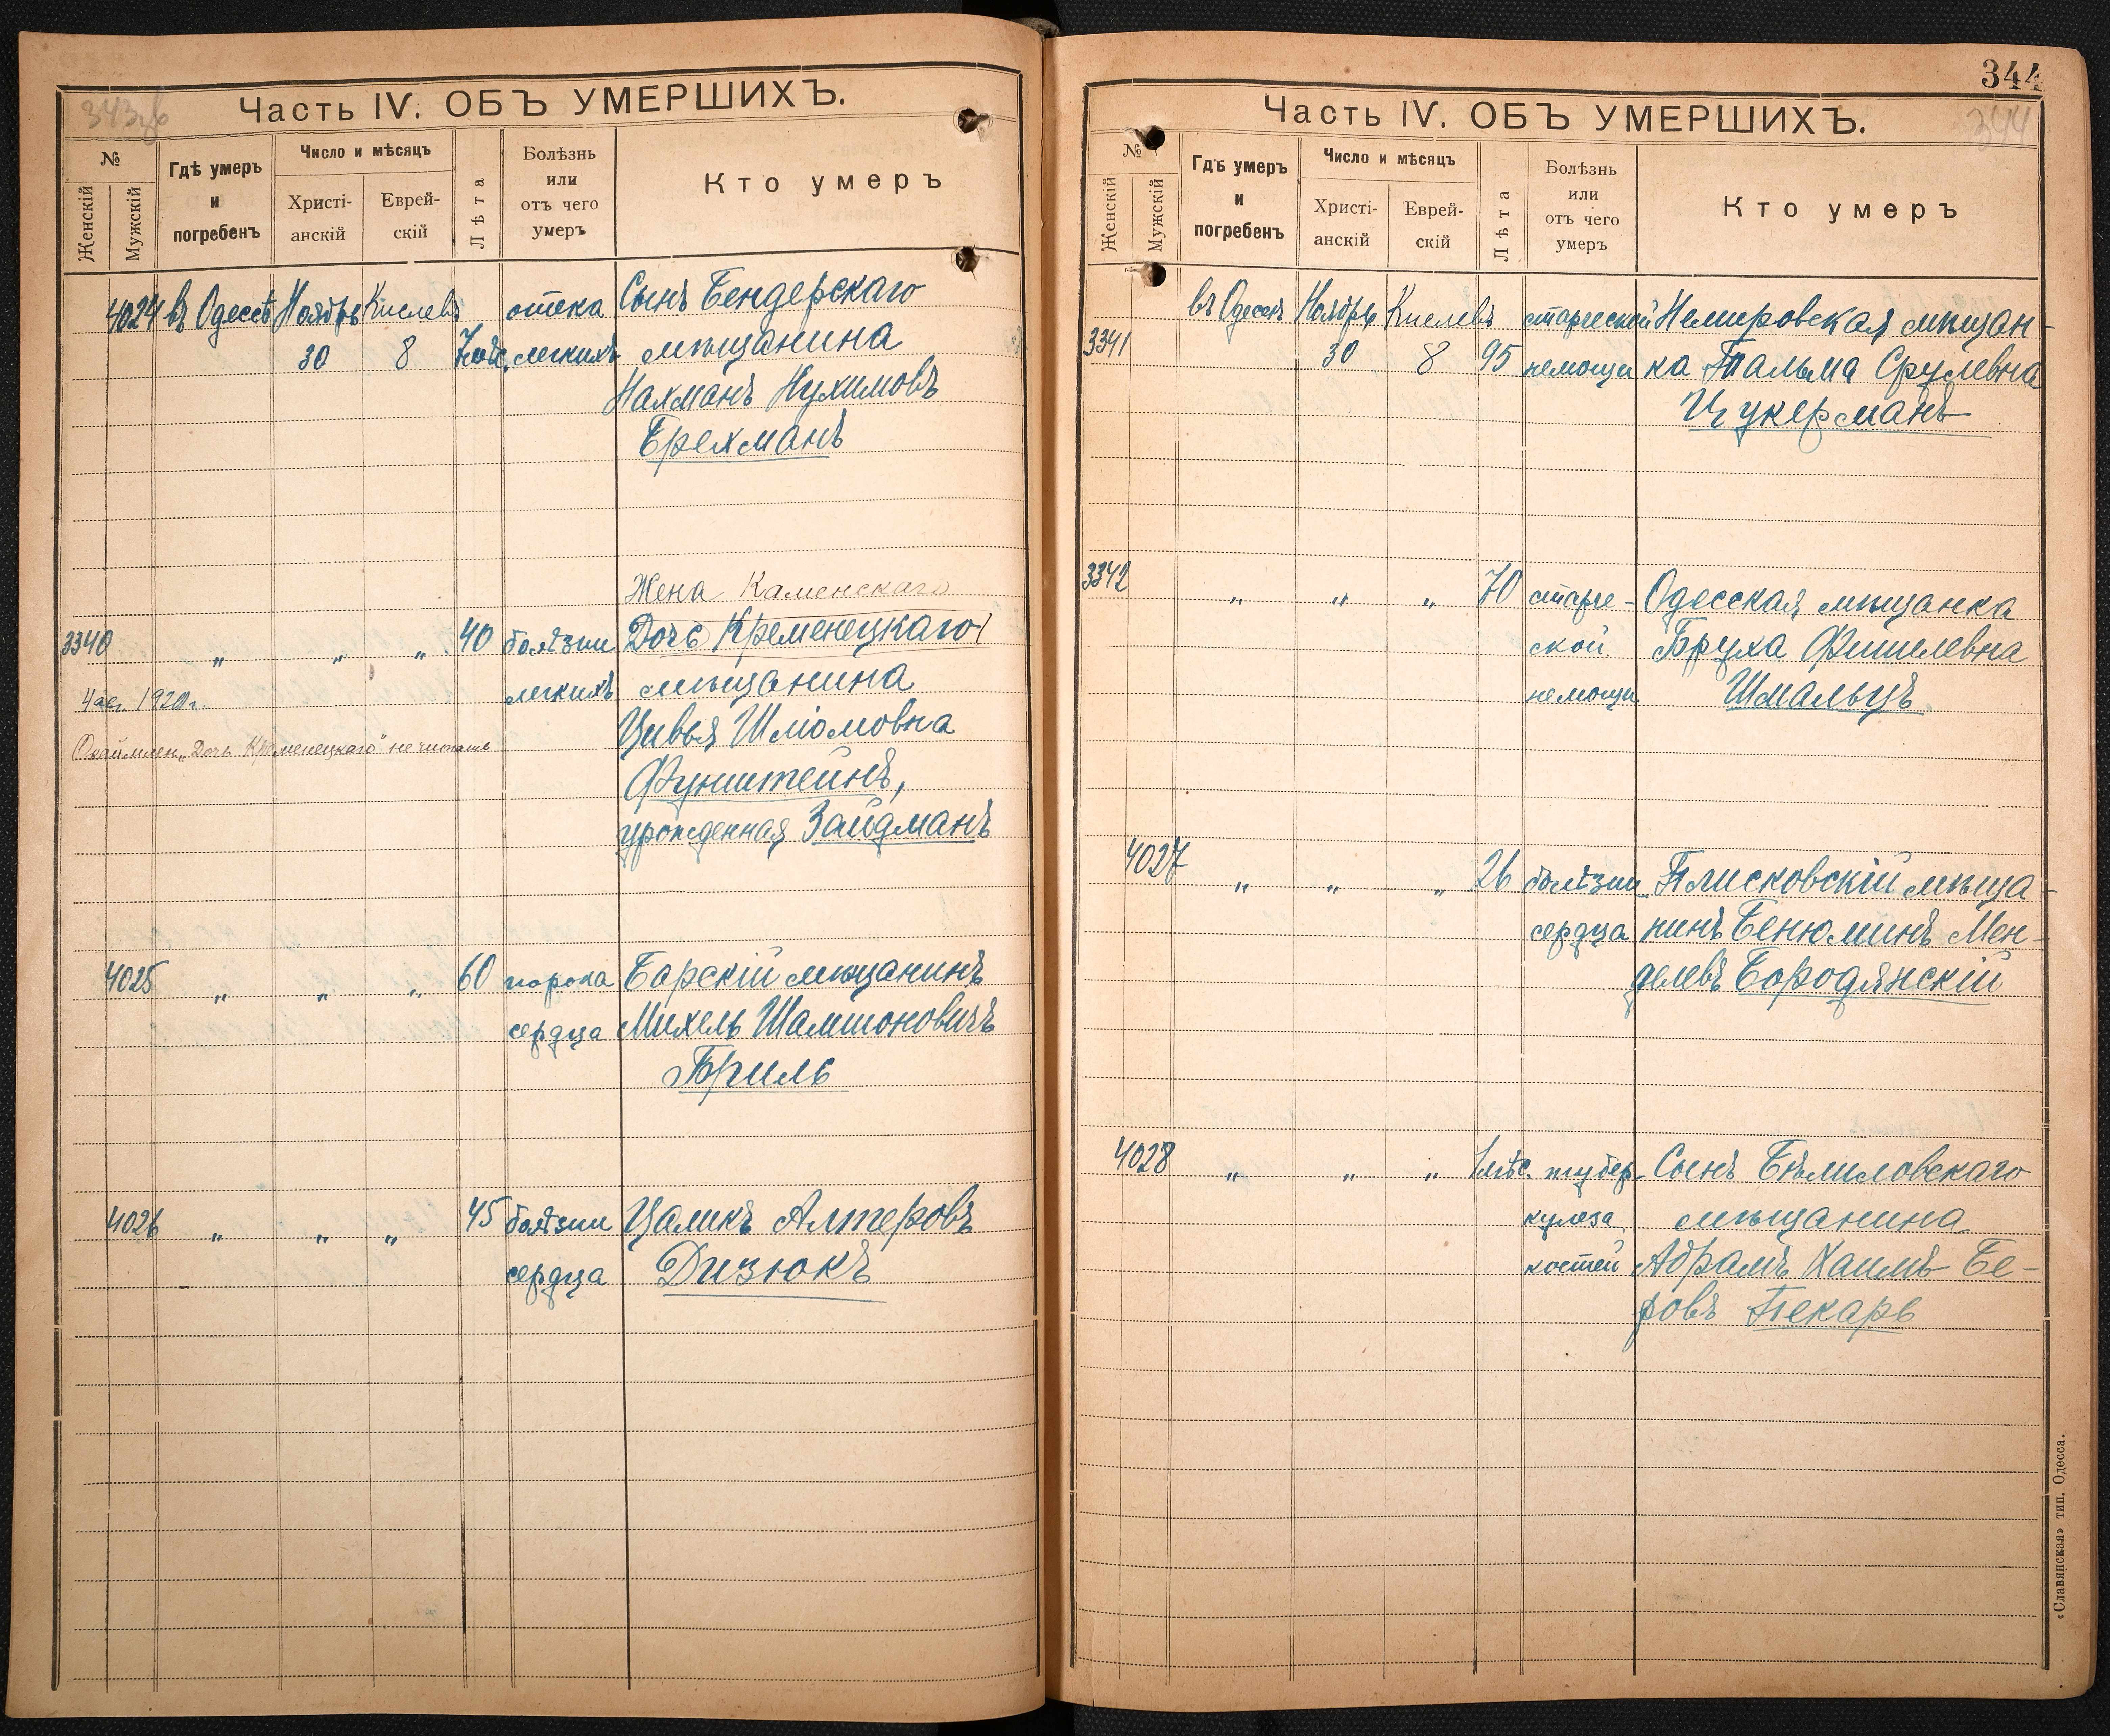 343об
Часть IV. ОБЪ УМЕРШИХЪ.
№
Женскій
Мужскій
Гдѣ умеръ
и
погребенъ
Число и мѣсяцъ
Христі-
анскій
Еврей-
скій
Лѣта
Болѣзнь
или
отъ чего
умеръ
Кто умеръ
4024 въ Одессѣ Ноябрь Кислевъ отека Сынъ Бендерскаго
30 8 легкихъ мѣщанина
Нахманъ Нухимовъ
Брехманъ
Жена Каменскаго
3340 " " " 40 болѣзни Дочь Кременецкаго
легкихъ мѣщанина
1920 г.
Цивья Шліомовна
"Дочь Кременецкаго" не читать
Фунштейнъ,
урожденная Зайдманъ
4025 " " " 60 порока Барскій мѣщанинъ
сердца Михель Шамшоновичъ
Бриль
4026 " " " 45 болѣзни Цаликъ Алтеровъ
сердца Дизюкъ
344
344
Часть IV. ОБЪ УМЕРШИХЪ.
№
Женскій
Мужскій
Гдѣ умеръ
и
погребенъ
Число и мѣсяцъ
Христі-
анскій
Еврей-
скій
Лѣта
Болѣзнь
или
отъ чего
умеръ
Кто умеръ
въ Одессѣ Ноябрь Кислевъ старческой Немировская мѣщан-
3341 30 8 95 немощи ка Тальма Срулевна
Цукерманъ
3342 " " " 70 старче- Одесская мѣщанка
ской Бруха Фишелевна
немощи Шмальцъ
4027 " " " 26 болѣзни Плисковскій мѣща-
сердца нинъ Бенюминъ Мен-
делевъ Бородянскій
4028 " " " 1 мѣс. тубер- Сынъ Бѣлиловскаго
кулеза мѣщанина
костей Абрамъ Хаимъ Бе-
ровъ Пекарь
«Славянская» тип. Одесса.